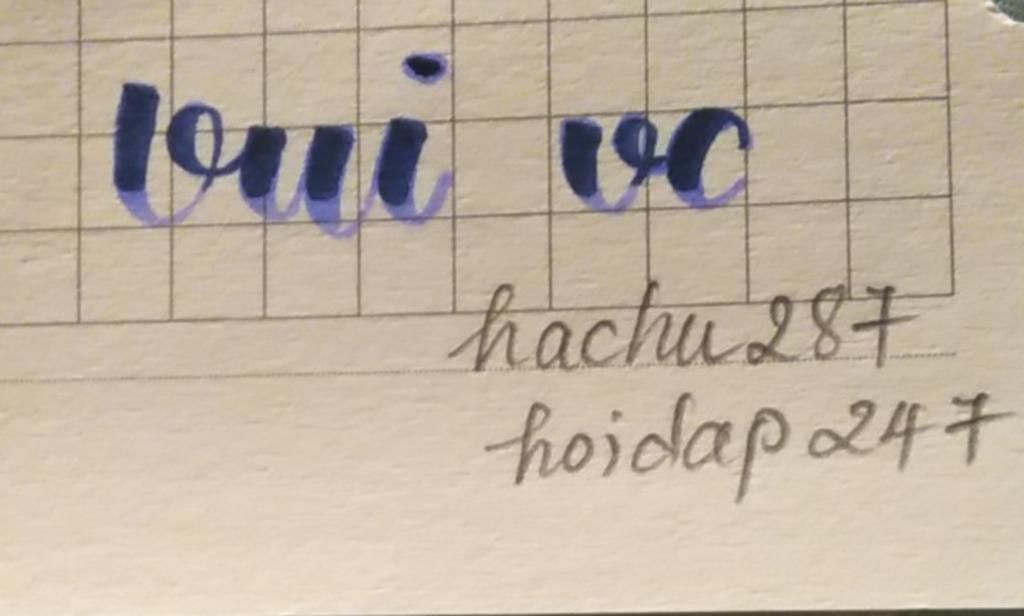 vui vc
hachu287
hoidap247